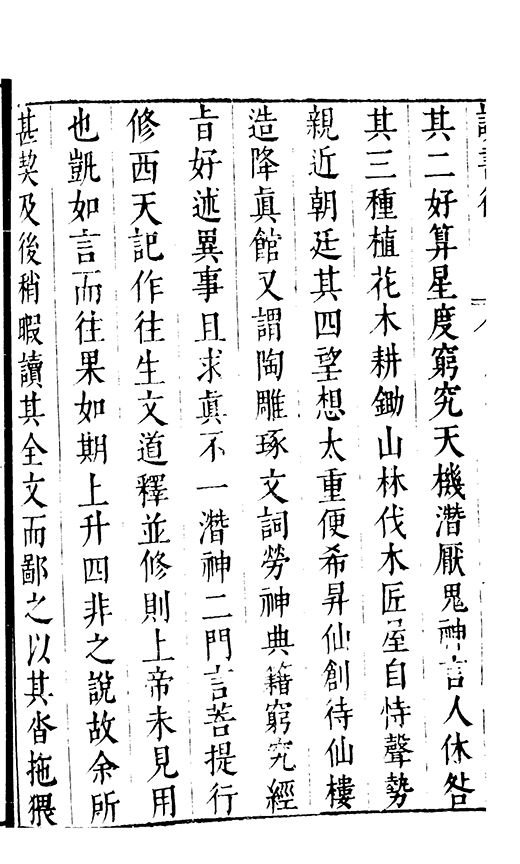 讀書後　八
其二好算星度窮究天機潛厭鬼神言人休咎
其三種植花木耕鋤山林伐木匠屋自恃聲勢
親近朝廷其四望想太重便希昇仙創待仙樓
造降眞館又謂陶雕琢文詞勞神典籍窮究經
旨好述異事且求眞不一潛神二門言菩提行
修西天記作往生文道釋並修則上帝未見用
也凱如言而往果如期上升四非之說故余所
甚契及後稍暇讀其全文而鄙之以其沓拖猥